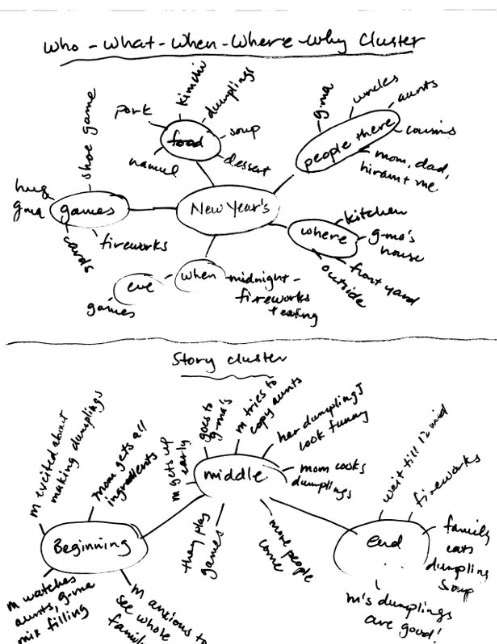 Who-What-When-Where-Why Cluster
kimchi
dumplings
pork
soup
food
namul
dessert
g-ma
uncles
aunts
cousins
people there
mom, dad,
hiram + me
shoe game
hug
g-ma
games
cards
fireworks
New Year's
kitchen
where
g-ma's
house
front yard
outside
when
midnight -
fireworks
+ eating
eve
games
Story cluster
m excited about
making dumplings
mom gets all
ingredients
Beginning
m watches
aunts, g-ma
mix filling
m anxious to
see whole
m gets up
early
goes to
g-ma's
m tries to
copy aunts
her dumplings
look funny
middle
mom cooks
dumplings
they play
games
more people
come
wait till 12 mid
fireworks
end
family
eats
dumpling
soup
m's dumplings
are good!